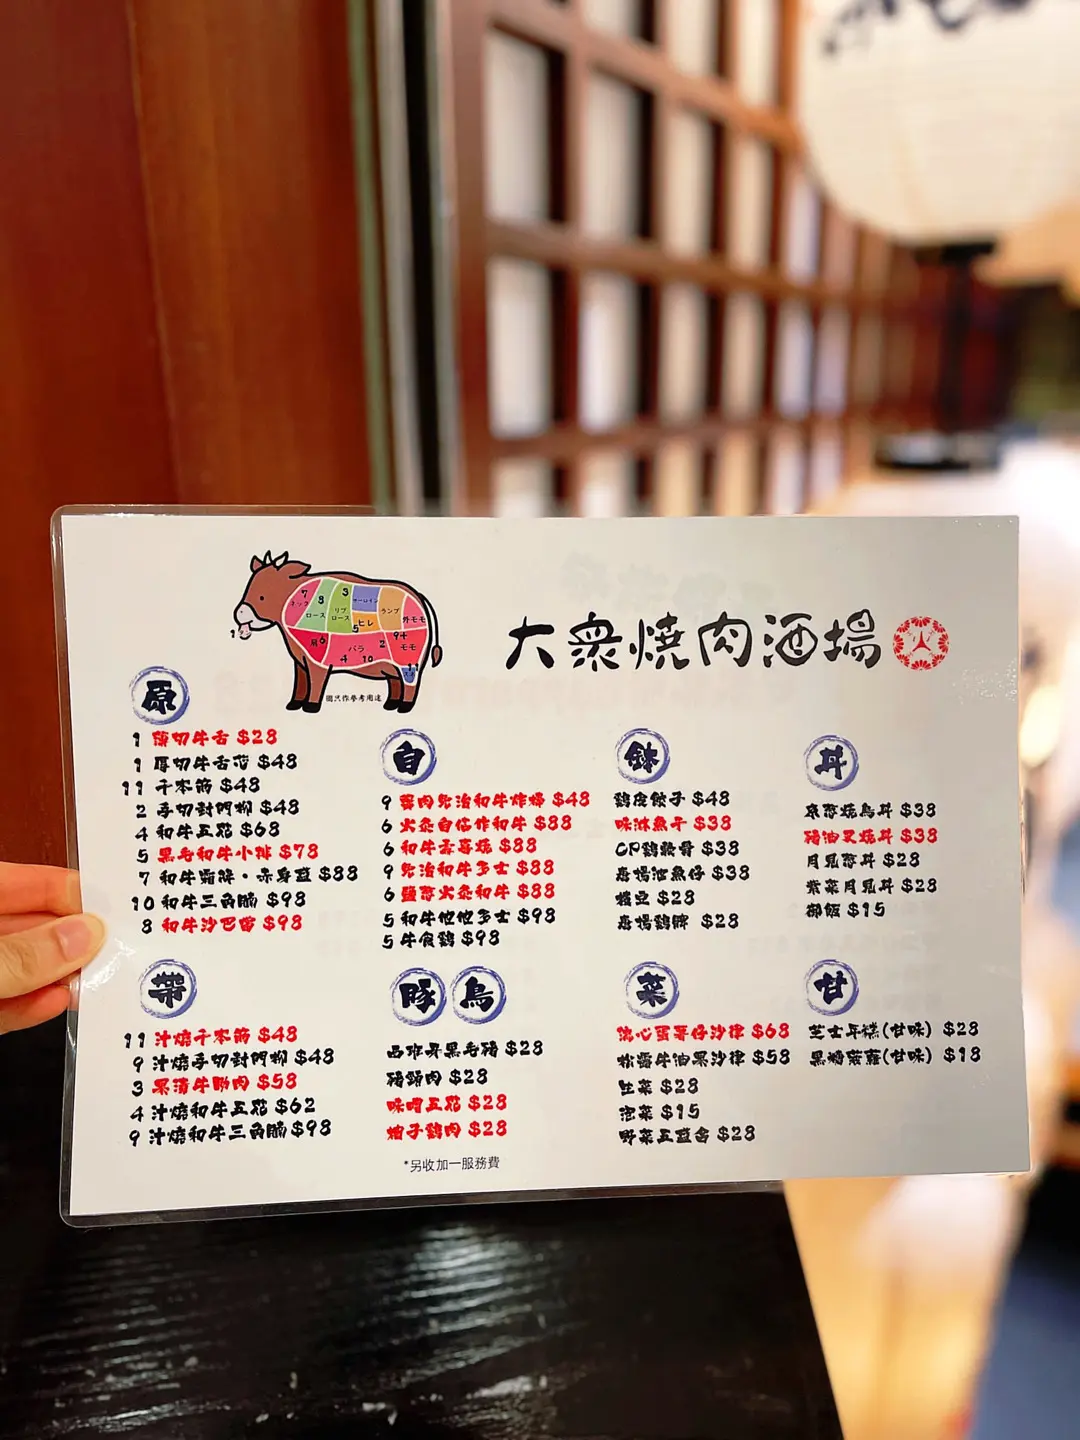 大衆燒肉酒場
7 ネック
8 ロース
3 リブロース
サーロイン
ランプ
5 ヒレ
外モモ
1
肩 6
バラ
4 10
2
94 モモ
11
圖只作參考用途
原
1 薄切牛舌 $28
1 厚切牛舌芯 $48
11 千本筋 $48
2 手切封門柳 $48
4 和牛五花 $68
5 黑毛和牛小排 $78
7 和牛霜降・赤身盛 $88
10 和牛三角腩 $98
8 和牛沙巴當 $98
白
9 葉肉免治和牛炸 $48
6 火灸自信作和牛 $88
6 和牛壽喜燒 $88
9 免治和牛多士 $88
6 鹽蔥火灸和牛 $88
5 和牛他他多士 $98
5 牛食鷄 $98
鉢
鷄皮餃子 $48
味淋魚干 $38
CP鷄軟骨 $38
唐揚池魚仔 $38
枝豆 $28
唐揚鷄脾 $28
丼
京蔥燒鳥丼 $38
豬油叉燒丼 $38
月見蔥丼 $28
紫菜月見丼 $28
御飯 $15
帶
11 汁燒千本筋 $48
9 汁燒手切封門柳 $48
3 果漬牛肋肉 $58
4 汁燒和牛五花 $62
9 汁燒和牛三角腩 $98
豚 鳥
西班牙黑毛豬 $28
豬頸肉 $28
味噌五花 $28
柚子鷄肉 $28
菜
流心蛋薯仔沙律 $68
松露牛油果沙律 $58
生菜 $28
泡菜 $15
野菜五盛合 $28
甘
芝士年糕(甘味) $28
黑糖菠蘿(甘味) $18
*另收加一服務費